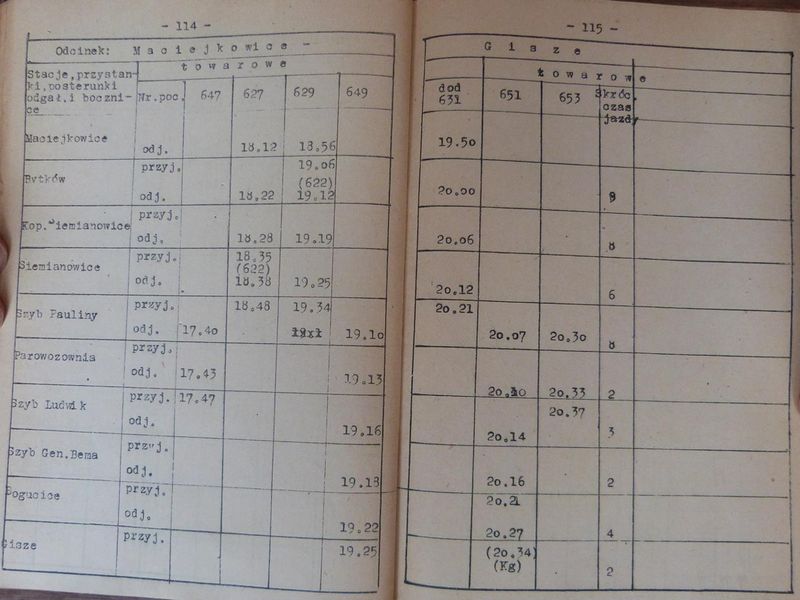 - 114 -
Odcinek: Maciejkowice -
Stacje, przystan-
ki, posterunki
odgał. i boczni-
ce
towarowe
Nr. poc. 647 627 629 649
Maciejkowice
odj. 18.12 18.56
Bytków
przyj. 19.06
(622)
odj. 18.22 19.12
Kop. Siemianowice
przyj.
odj. 18.28 19.19
Siemianowice
przyj. 18.35
(622)
odj. 18.38 19.25
Szyb Pauliny
przyj. 18.48 19.34
odj. 17.40 19.10
Parowozownia
przyj.
odj. 17.43 19.13
Szyb Ludwik
przyj. 17.47
odj. 19.16
Szyb Gen. Bema
przyj.
odj. 19.18
Bogucice
przyj.
odj. 19.22
Gisze
przyj. 19.25
- 115 -
Gisze
towarowe
dod
631 651 653 Skróc.
czas
jazdy
19.50
20.00 9
20.06 8
20.12 6
20.21
20.07 20.30 8
20.10 20.33 2
20.37
20.14 3
20.16 2
20.21
20.27 4
(20.34)
(Kg) 2